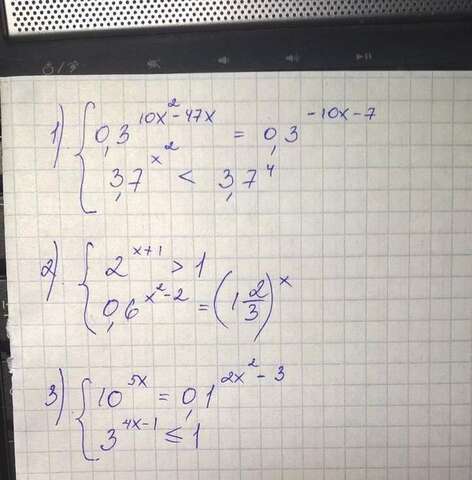 1) { 0,3^(10x²-47x) = 0,3^(-10x-7)
3,7^(x²) < 3,7⁴
2) { 2^(x+1) > 1
0,6^(x²-2) = (1 2/3)^x
3) { 10^(5x) = 0,1^(2x²-3)
3^(4x-1) ≤ 1